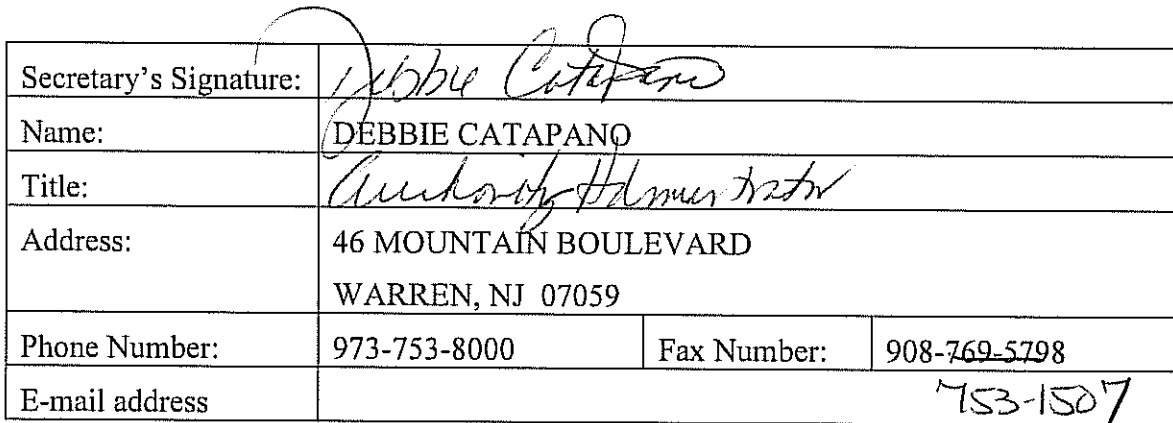 Secretary's Signature: Debbie Catapano
Name: DEBBIE CATAPANO
Title: Authority Administrator
Address: 46 MOUNTAIN BOULEVARD
WARREN, NJ 07059
Phone Number: 973-753-8000 Fax Number: 908-769-5798
E-mail address 753-1507